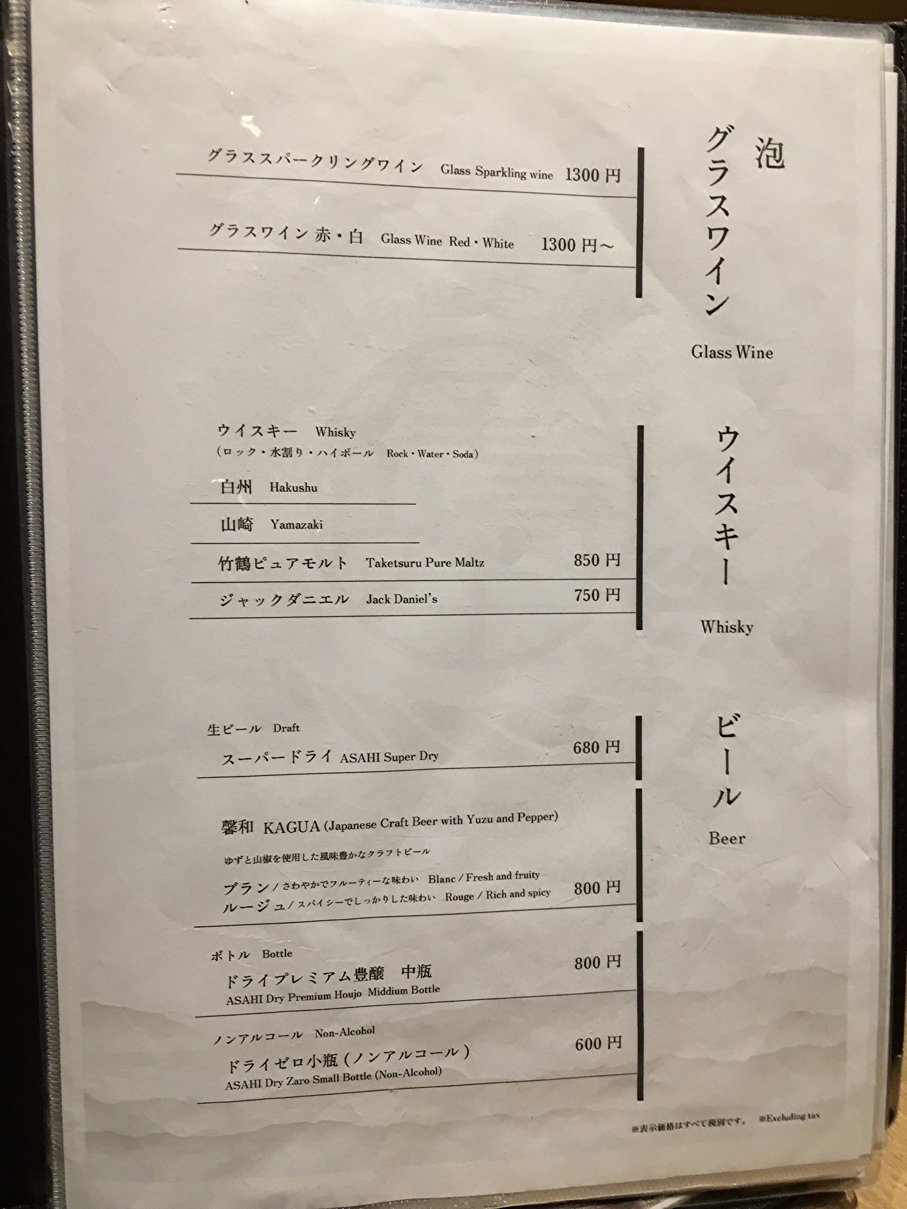 泡
グラスワイン
Glass Wine
グラススパークリングワイン Glass Sparkling wine 1300 円
グラスワイン 赤・白 Glass Wine Red・White 1300 円～
ウイスキー
Whisky
ウイスキー Whisky
（ロック・水割り・ハイボール Rock・Water・Soda）
白州 Hakushu
山崎 Yamazaki
竹鶴ピュアモルト Taketsuru Pure Maltz 850 円
ジャックダニエル Jack Daniel's 750 円
ビール
Beer
生ビール Draft
スーパードライ ASAHI Super Dry 680 円
馨和 KAGUA (Japanese Craft Beer with Yuzu and Pepper)
ゆずと山椒を使用した風味豊かなクラフトビール
ブラン / さわやかでフルーティーな味わい Blanc / Fresh and fruity
ルージュ / スパイシーでしっかりした味わい Rouge / Rich and spicy 800 円
ボトル Bottle
ドライプレミアム豊醸 中瓶 800 円
ASAHI Dry Premium Houjo Middium Bottle
ノンアルコール Non-Alcohol
ドライゼロ小瓶 ( ノンアルコール ) 600 円
ASAHI Dry Zaro Small Bottle (Non-Alcohol)
※表示価格はすべて税別です。 ※Excluding tax